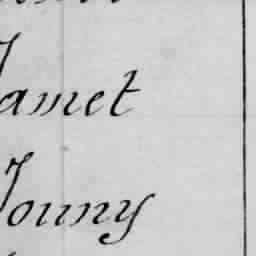 Jamet
Jouny